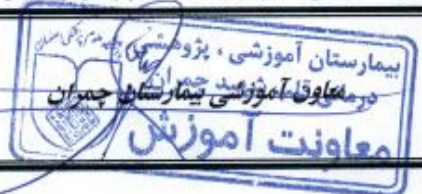 بیمارستان آموزشی ، پژوهشی
درمانی شهید چمران
معاون آموزشی بیمارستان چمران
معاونت آموزش